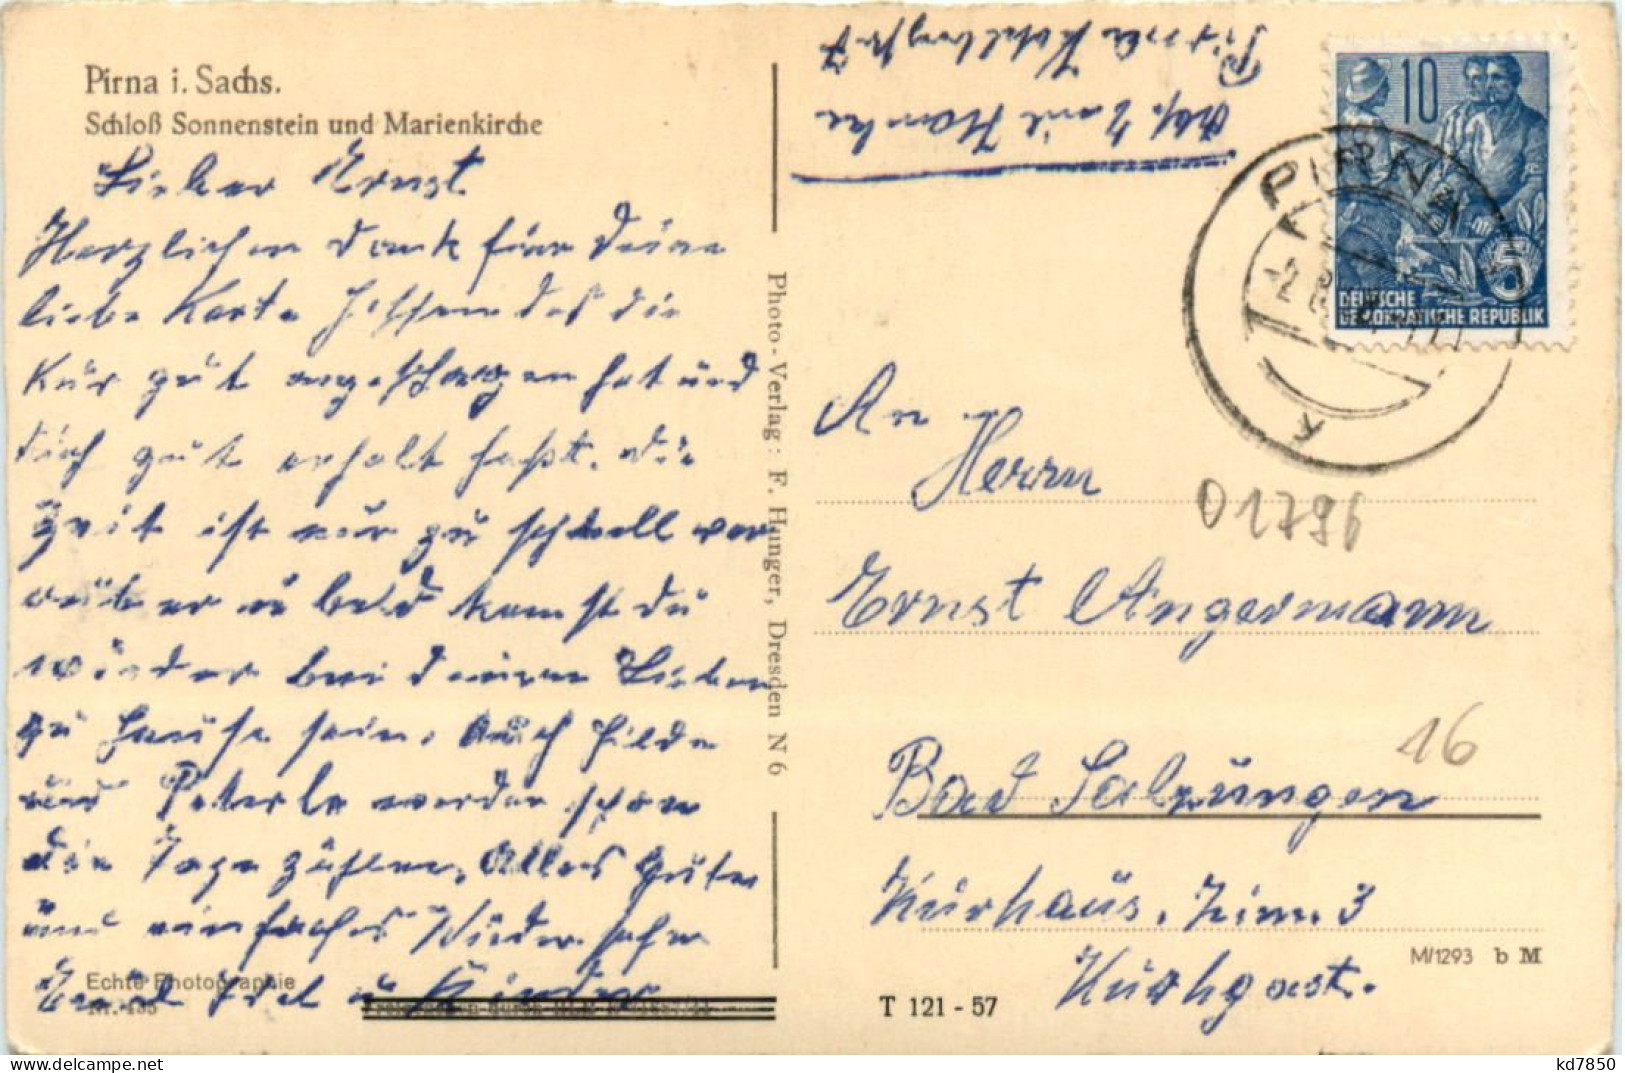 Pirna i. Sachs.
Schloß Sonnenstein und Marienkirche
Lieber Ernst
Herzlichen Dank für deine
liebe Karte hoffen daß die
Kur gut angeschlagen hat und
dich gut erholt hast. Die
Zeit ist nur zu schnell vor
über u bald kommst du
wieder bei deinen Lieben
zu Hause sein. Auch Hilde
und Peterle werden schon
die Tage zählen. Alles Gute
und einfaches Wiedersehn
Emil u Kinder
Echte Photographie
Photo-Verlag: F. Hunger, Dresden N 6
Abs. Emil Hanke
Pirna
10
5
DEUTSCHE
DEMOKRATISCHE REPUBLIK
PIRNA
An
Herrn
01796
Ernst Angermann
16
Bad Salzungen
Kurhaus. Zimm. 3
Kurhgast.
M/1293 b M
T 121 - 57
kd7850